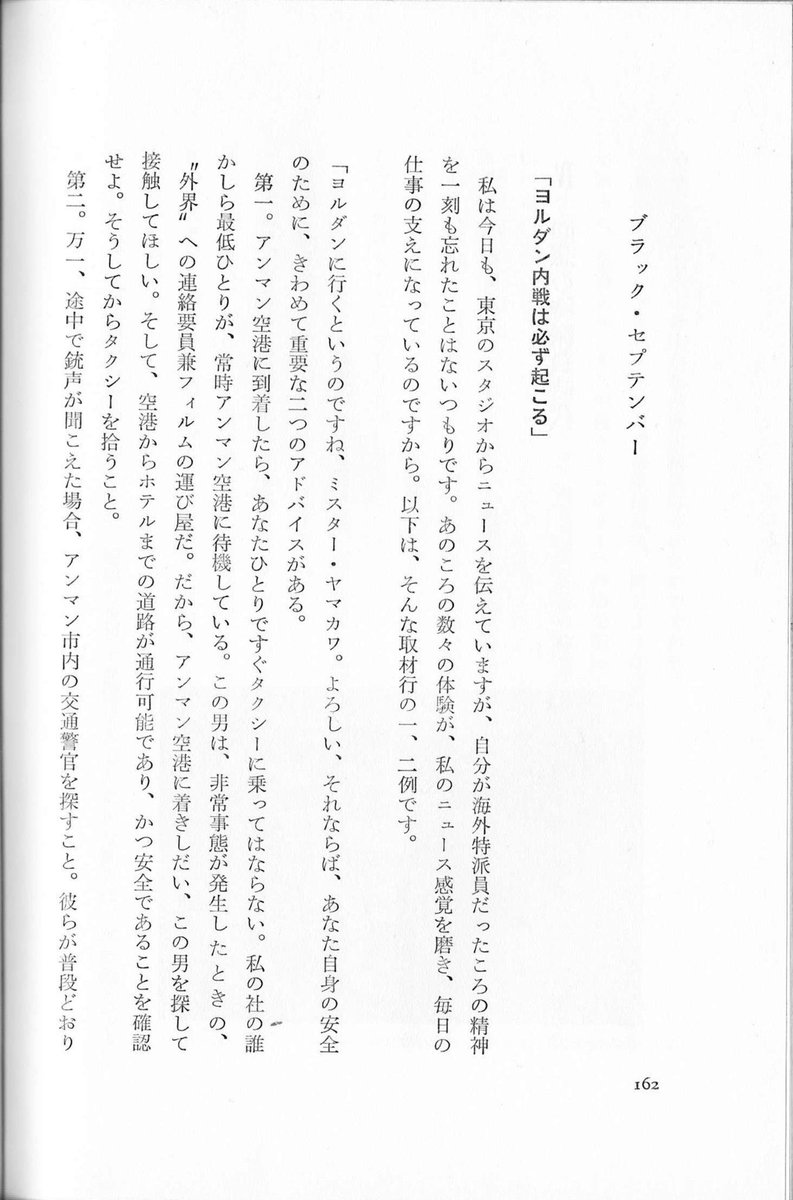 ブラック・セプテンバー
「ヨルダン内戦は必ず起こる」
私は今日も、東京のスタジオからニュースを伝えていますが、自分が海外特派員だったころの精神
を一刻も忘れたことはないつもりです。あのころの数々の体験が、私のニュース感覚を磨き、毎日の
仕事の支えになっているのですから。以下は、そんな取材行の一、二例です。
「ヨルダンに行くというのですね、ミスター・ヤマカワ。よろしい、それならば、あなた自身の安全
のために、きわめて重要な二つのアドバイスがある。
第一。アンマン空港に到着したら、あなたひとりですぐタクシーに乗ってはならない。私の社の誰
かしら最低ひとりが、常時アンマン空港に待機している。この男は、非常事態が発生したときの、
〝外界〟への連絡要員兼フィルムの運び屋だ。だから、アンマン空港に着きしだい、この男を探して
接触してほしい。そして、空港からホテルまでの道路が通行可能であり、かつ安全であることを確認
せよ。そうしてからタクシーを拾うこと。
第二。万一、途中で銃声が聞こえた場合、アンマン市内の交通警官を探すこと。彼らが普段どおり
162